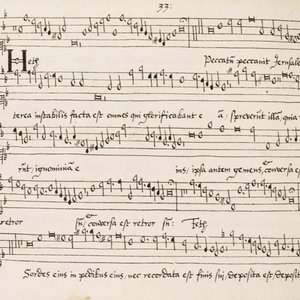 33
Heth Peccatū peccauit Jerusale
terea instabilis facta est omnes qui glorificabant e ā spreverūt illā, quia
rūt ignominiā e ius, ipsa autem gemens, conversa e
retror sū, conversa est retror sū: Teth
Sordes eius in pedibus eius, nec recordata est finis sui, deposita est, deposi